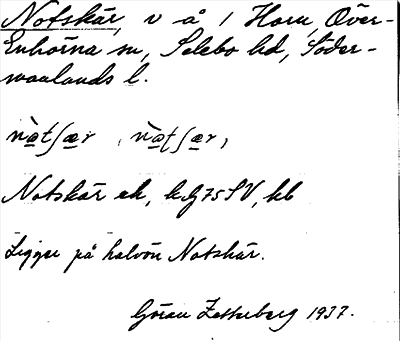 Notskär, v å 1 Horn, Över-
Enhörna sn, Selebo hd, Söder-
manlands l.
nò̱tʃæ̱r , nò̱tʃæ̱r,
Notskär ek, kb
Ligger på halvön Notskär.
Göran Zetterberg 1937.